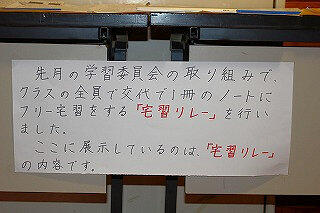 先月の学習委員会の取り組みで、
クラスの全員で交代で1冊のノートに
フリー宅習をする「宅習リレー」を行い
ました。
ここに展示しているのは、「宅習リレー」
の内容です。